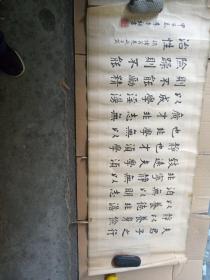 夫君子之行
靜以修身儉
以養德非澹
泊無以明志
非寧靜無以
致遠夫學須
靜也才須學
也非學無以
廣才非志無
以成學
則不能勵精
險躁則不能
治性